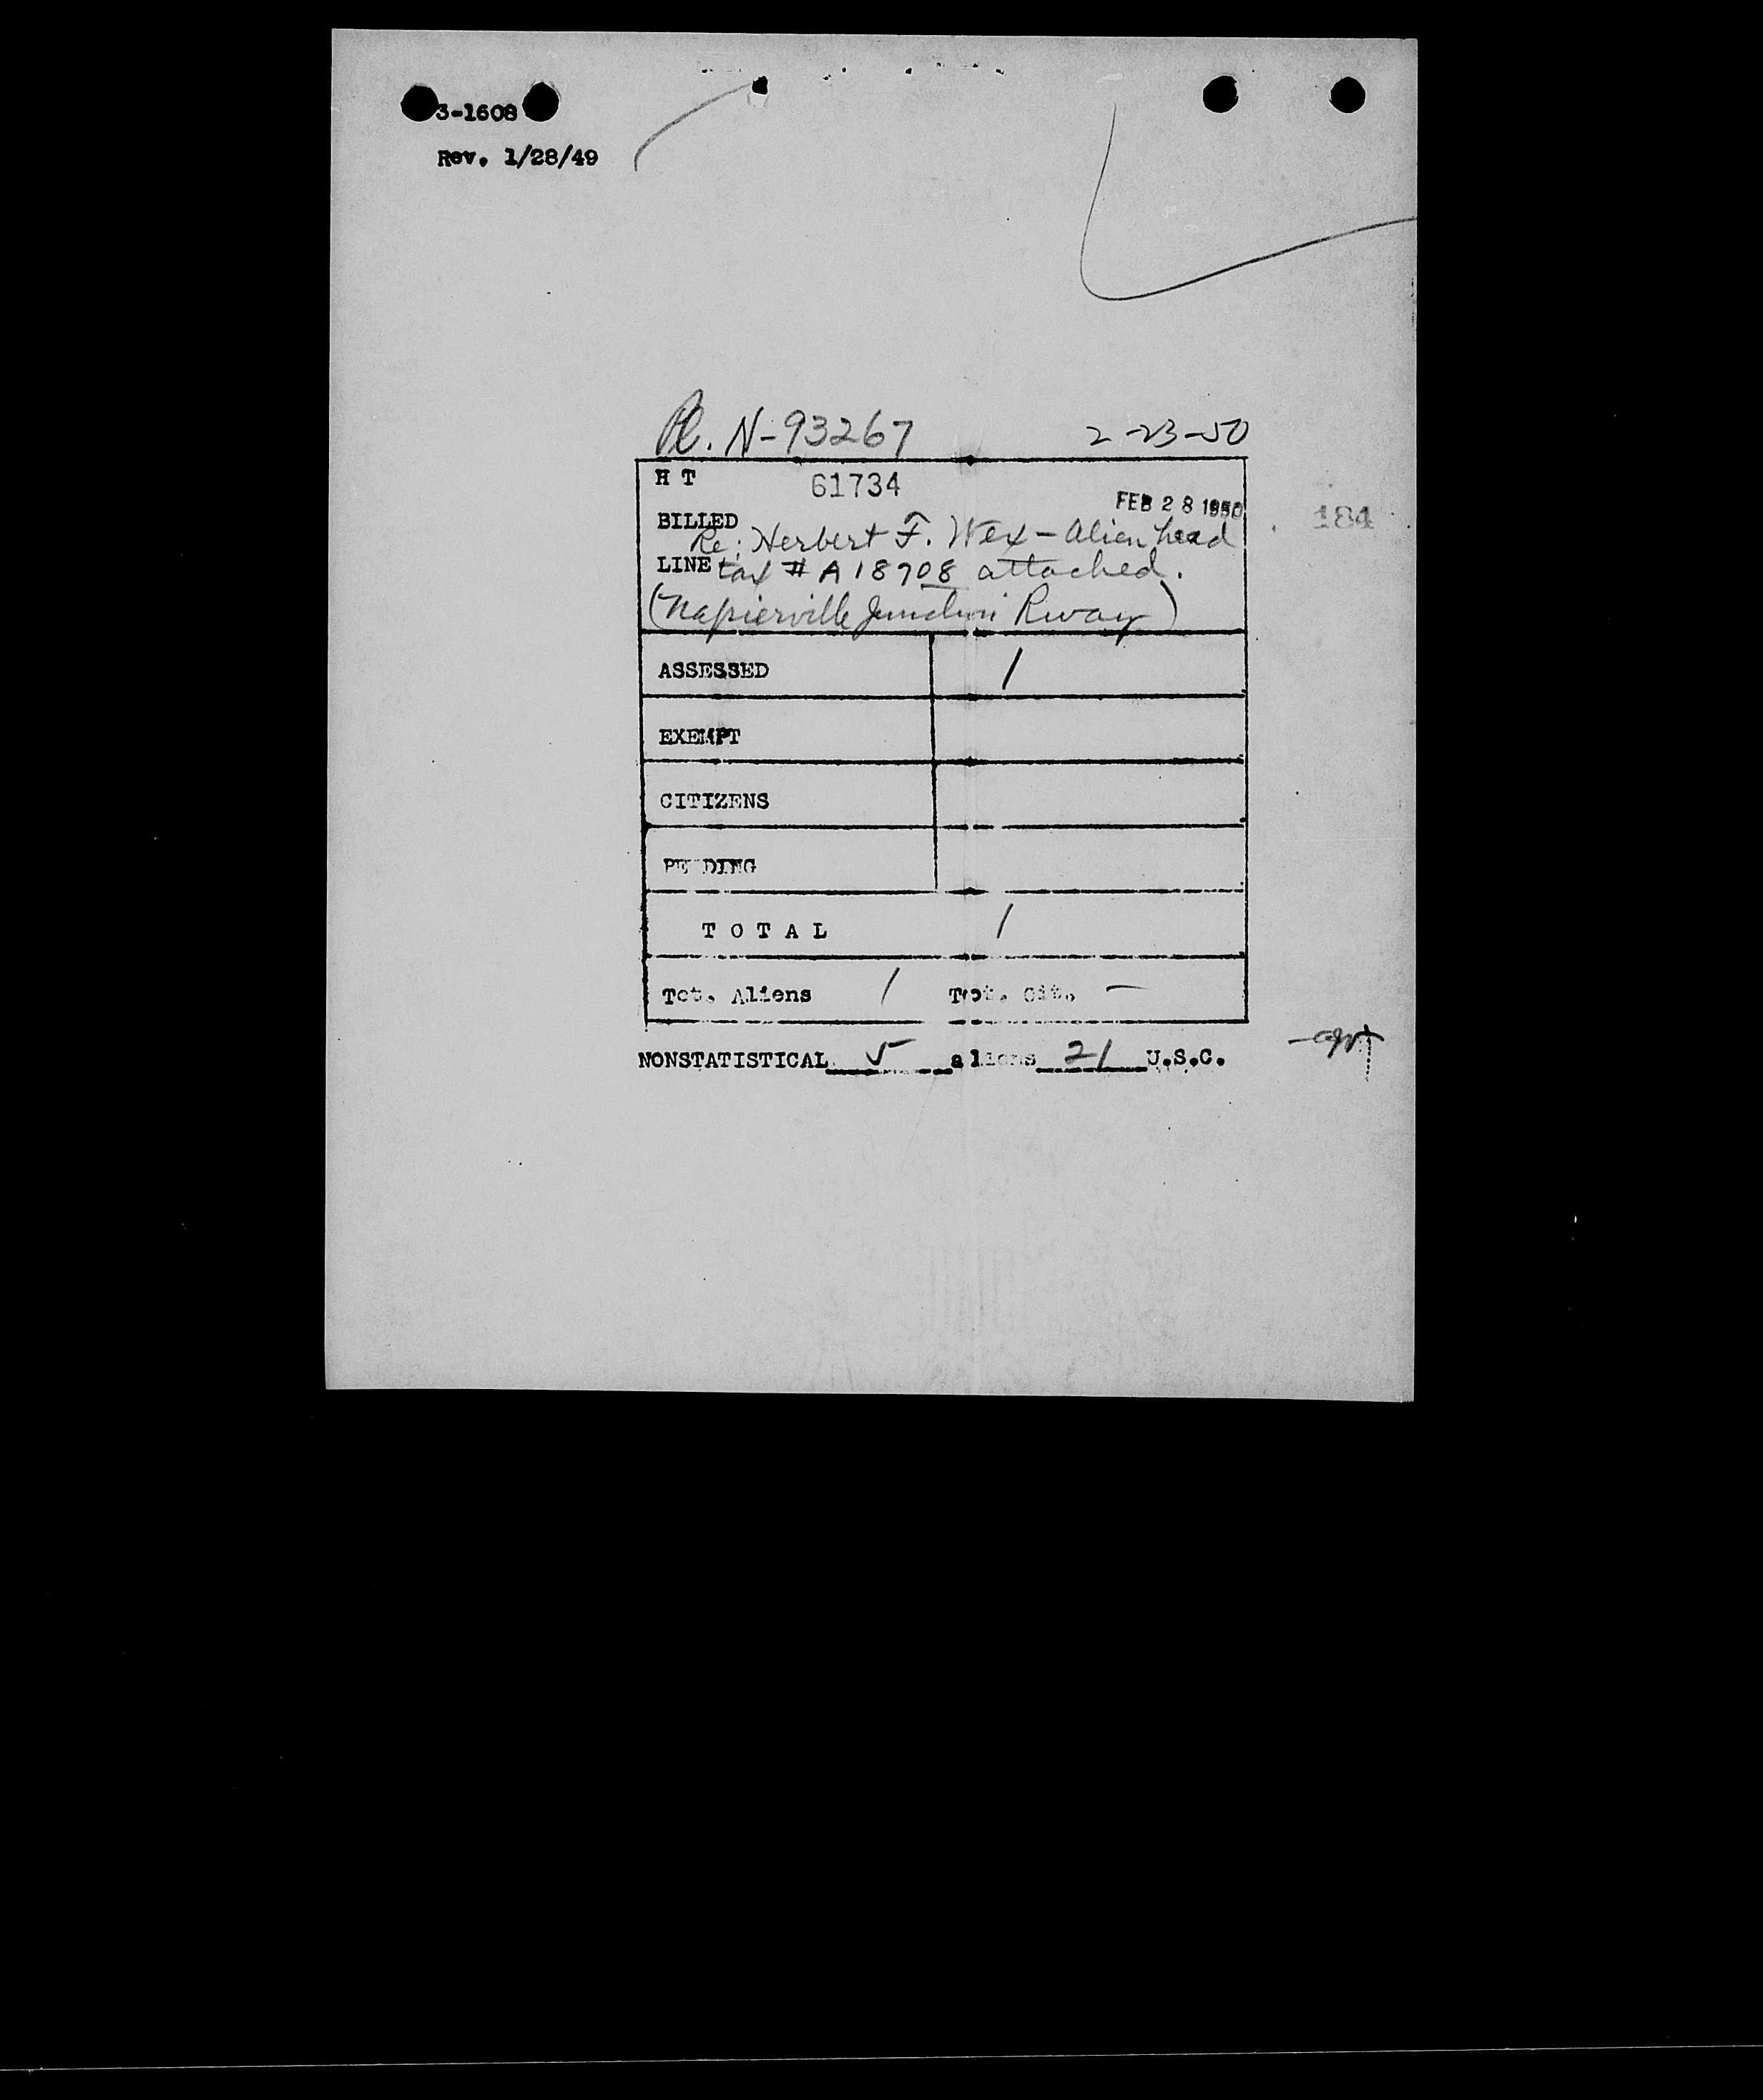 3-1608
Rev. 1/28/49
N-93267 2-23-50
H T 61734
FEB 28 1950
BILLED
184
Re: Herbert F. Wex - Alien head
LINE tax # A18708 attached.
(Napierville Junction Rway)
ASSESSED 1
EXEMPT
CITIZENS
PENDING
T O T A L 1
Tot. Aliens 1 Tot. Cit. —
NONSTATISTICAL 5 aliens 21 U.S.C.